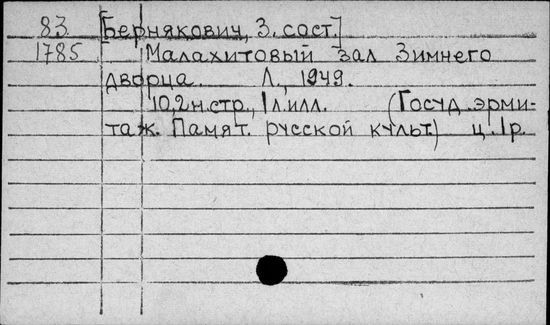 83 [Бернякович, З. сост.]
1785 Малахитовый зал Зимнего
дворца. Л., 1949.
10,2н.стр., 1л.илл. (Госуд. эрми-
таж. Памят. русской культ) ц. 1р.